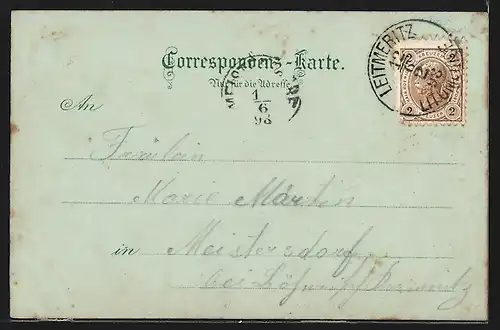 Correspondenz-Karte.
Nur für die Adresse
LEITMERITZ
2 2
1
6
98
An
Fräulein
Marie Martin
in Meistersdorf
bei